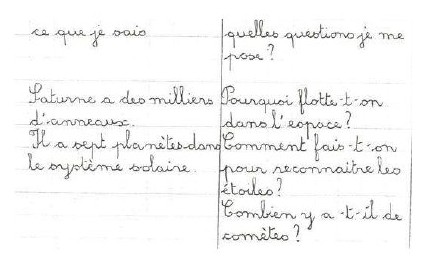 ce que je sais
quelles questions je me
pose ?
Saturne a des milliers
d'anneaux.
Il a sept planètes dans
le système solaire.
Pourquoi flotte-t-on
dans l'espace ?
Comment fais-t-on
pour reconnaitre les
étoiles ?
Combien y a-t-il de
comètes ?